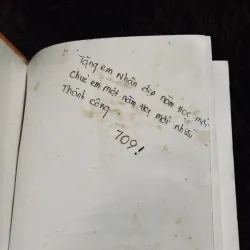 Tặng em nhân dịp năm học mới
Chúc em một năm học mới nhiều
Thành công
709!